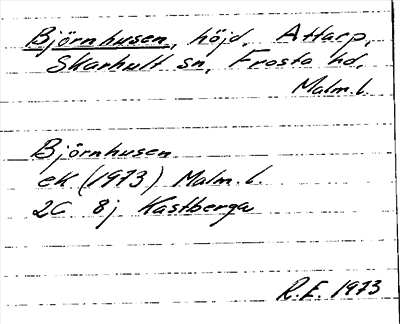 Björnhusen, höjd, Attarp,
Skarhult sn, Frosta hd,
Malm.l.
Björnhusen
ek (1973) Malm.l.
2C 8j Kastberga
R.E. 1973